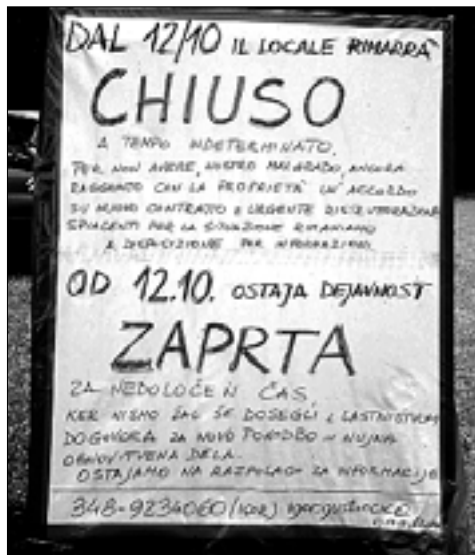 DAL 12/10 IL LOCALE RIMARRÀ
CHIUSO
A TEMPO INDETERMINATO.
PER NON AVERE, NOSTRO MALGRADO, ANCORA
RAGGIUNTO CON LA PROPRIETÀ UN ACCORDO
SU NUOVO CONTRATTO E URGENTE RISTRUTTURAZIONE
SPIACENTI PER LA SITUAZIONE RIMANIAMO
A DISPOSIZIONE PER INFORMAZIONI
OD 12.10. OSTAJA DEJAVNOST
ZAPRTA
ZA NEDOLOČEN ČAS,
KER NISMO ŽAL ŠE DOSEGLI Z LASTNIŠTVOM
DOGOVORA ZA NOVO POGODBO IN NUJNA
OBNOVITVENA DELA.
OSTAJAMO NA RAZPOLAGO ZA INFORMACIJE
348-9234060 (IGOR)